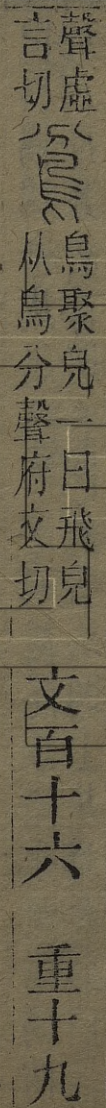 聲虛
言切
鳻
鳥聚皃一曰飛皃
从鳥分聲府文切
文百十六 重十九